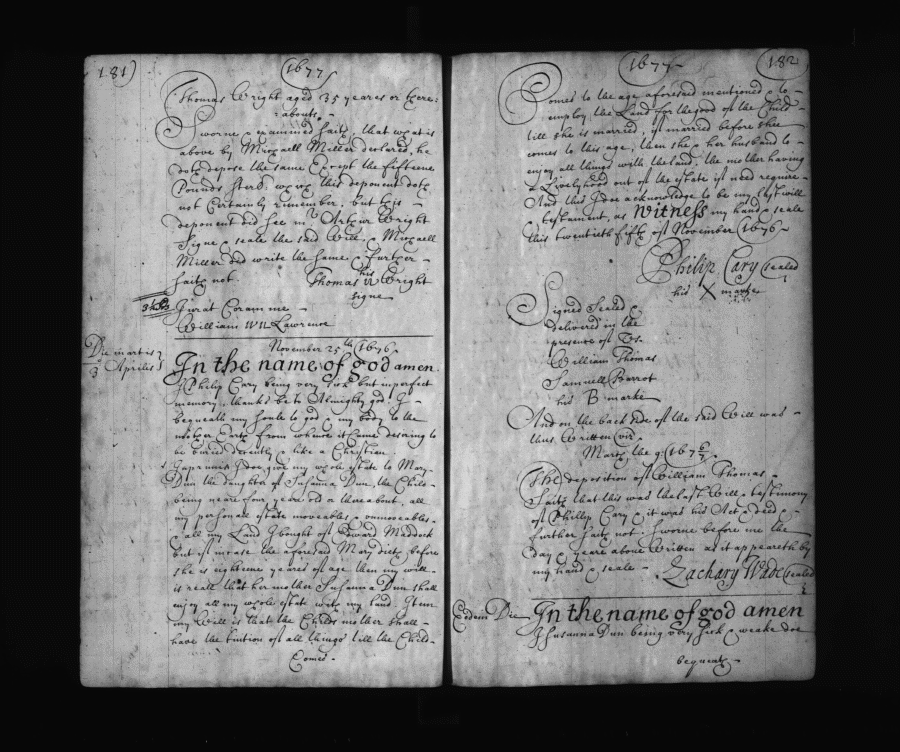 181)
(1677
Thomas Wright aged 35 yeares or there:
:abouts.
Sworne & examined saith, that what is
above by Michaell Miller declared, he
doth depose the same Except the fifteene
Pounds sterl. wch this deponent doth
not Certainly remember. but this
deponent did see mr Arthur Wright
Signe & seale the said Will, & Michaell
Miller did write the same & further
saith not. Thomas his Wright
signe
Jurat Coram me
William Wll Lawrence
Die martis
3 Aprilis
November 25th (1676
In the name of god amen.
I Philip Cary being very sick but in perfect
memory, thanks be to Almighty god. I
bequeath my soule to god & my body to the
mother Earth from whence it Came desiring to
be buried decently & like a Christian.
Imprimis I doe give my whole estate to Mary
Dun the daughter of Susanna Dun, the Child
being neare four yeare old or thereabout, all
my personall estate moveables & unmoveables
& all my Land I bought of Edward Maddock
but in case the aforesaid Mary dieth before
she is eighteene yeares of age then my will
is really that her mother Susanna Dun shall
enjoy all my whole estate with my land. Item
my Will is that the Childs mother shall
have the tuition of all things till the Child
Comes.
(1677
182
Comes to the age aforesaid mentioned & to
employ the Land for the good of the Child
till she is married, if married before shee
comes to this age, then she & her husband to
enjoy all things with the land, the mother having
a Livelyhood out of the estate if need require
And this I doe acknowledge to be my last will
& testament, as Witness my hand & seale
this twentieth fifth of November (1676
Philip Cary (sealed
his X marke
Signed Sealed &
delivered in the
presence of Us.
William Thomas
Samuell Barrot
his B marke
And on the back side of the said Will was
thus Written (viz.
March the 9: 167 6/7
The deposition of William Thomas
Saith that this was the last Will & testimony
of Phillip Cary & it was his Act & deed &
further saith not. Sworne before me the
day & yeare above Written as it appeareth by
my hand & seale Zachary Wade (sealed
Eodem Die
In the name of god amen
I Susanna Dun being very sick & weake doe
bequeath